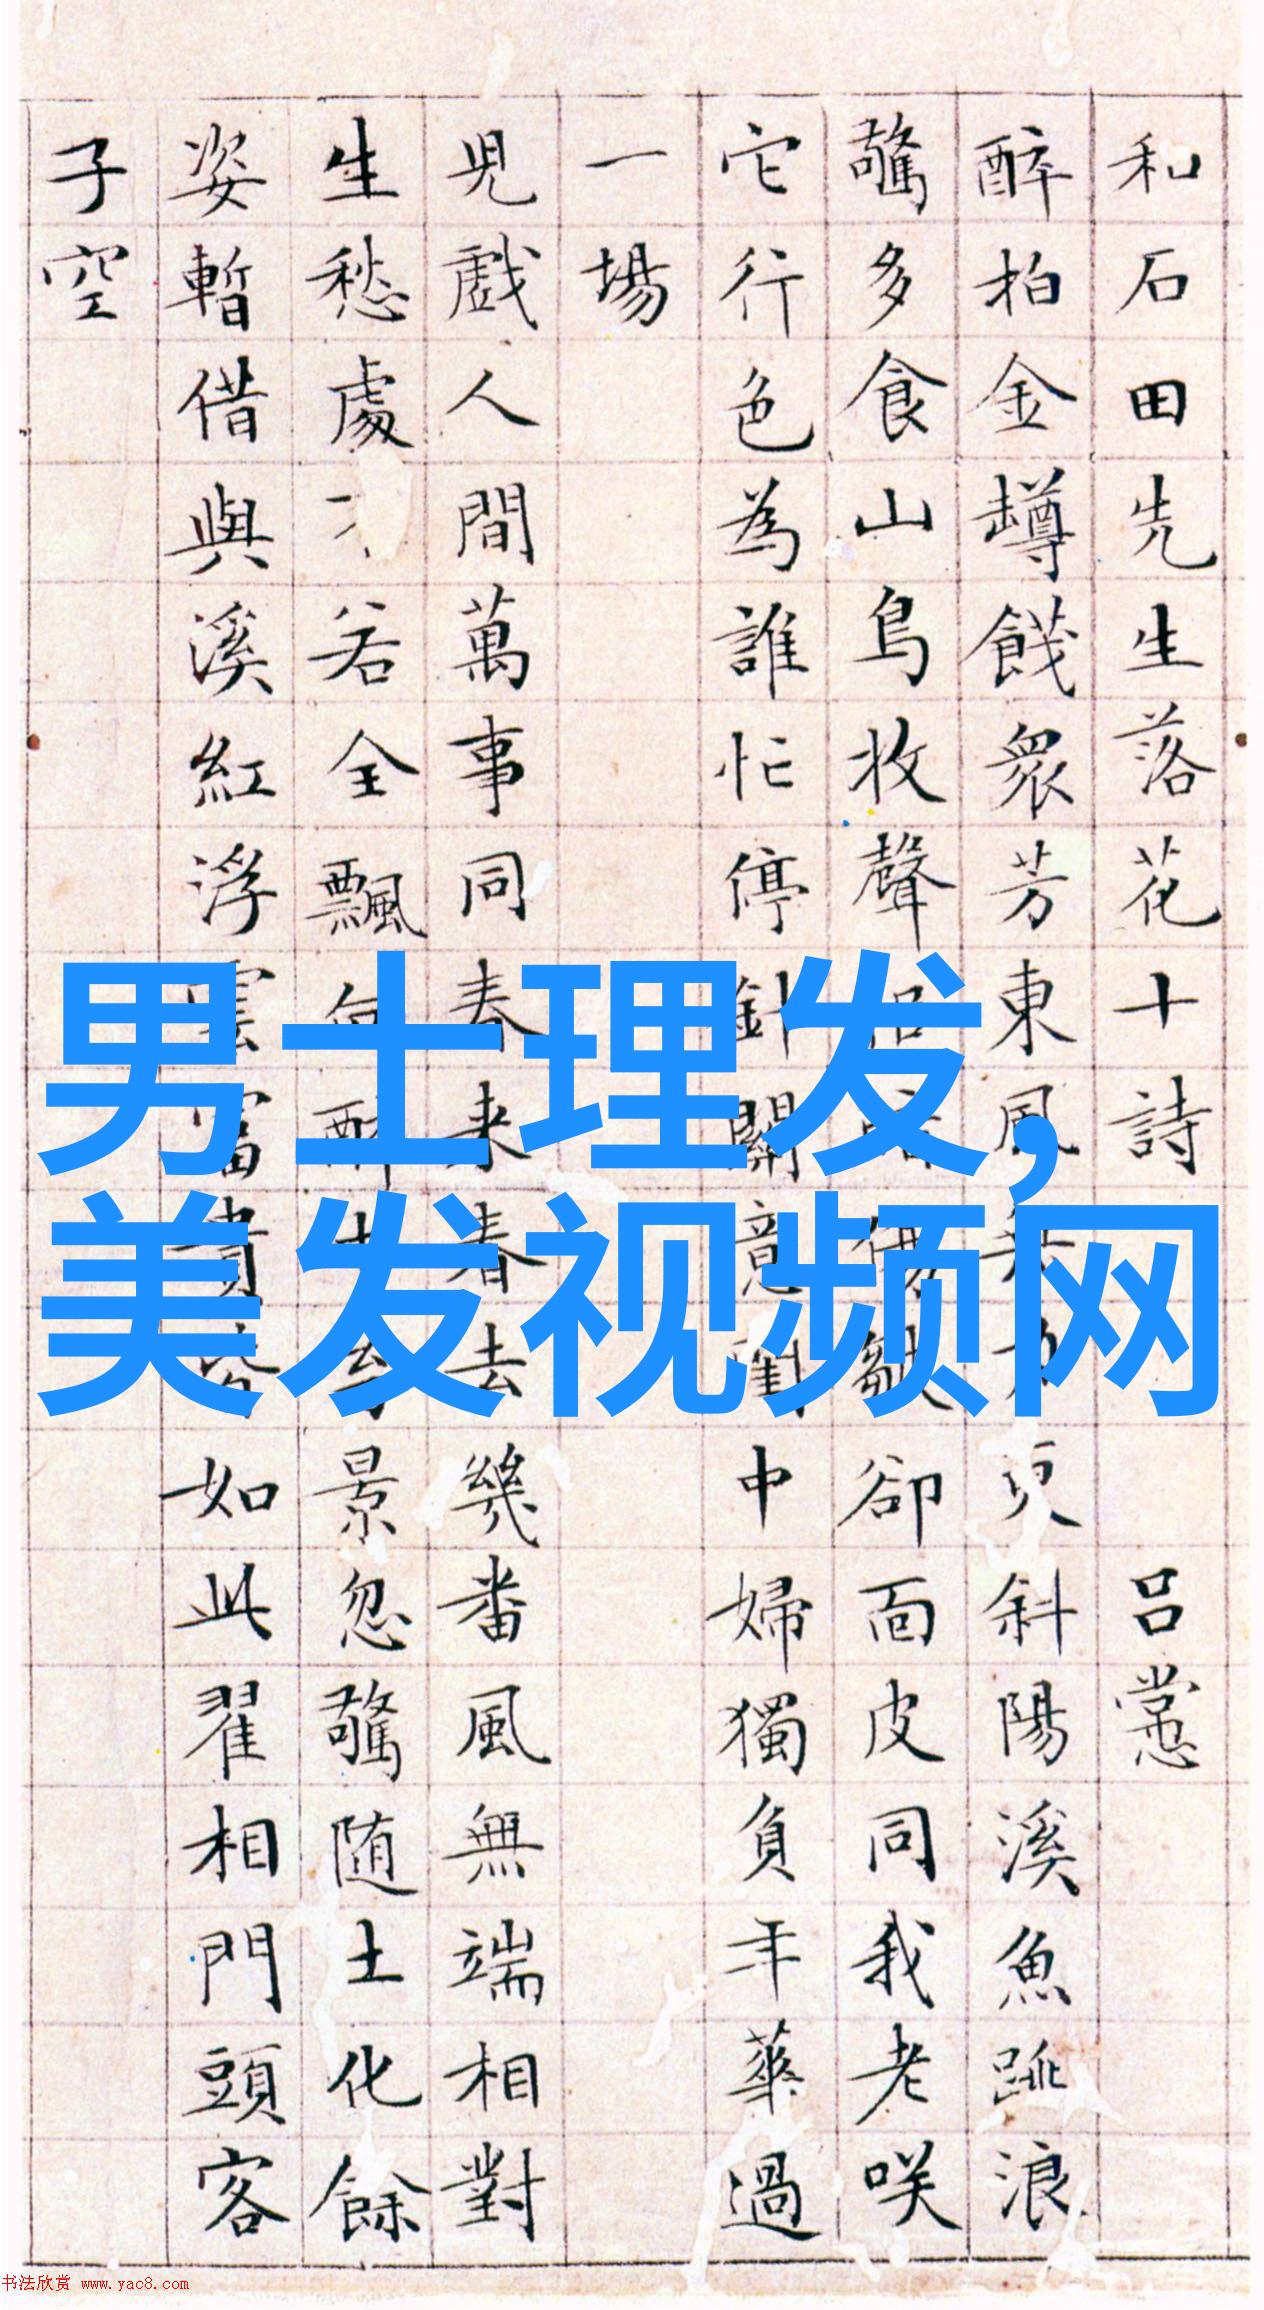 和石田先生落花十詩 呂㦂
醉拍金罇餞眾芳東風無力更斜陽溪魚跳浪
驚多食山鳥收聲卻面皮同我老咲
它行色為誰忙停針關意閨中婦獨負年華過
一場
兒戲人間萬事同春来春去幾番風無端相對
生愁處若全飄景忽驚随土化餘
姿暫借與溪紅浮雲富貴皆如此翟相門頭客
子空
男士理发,
美发视频网
书法欣赏 www.yac8.com